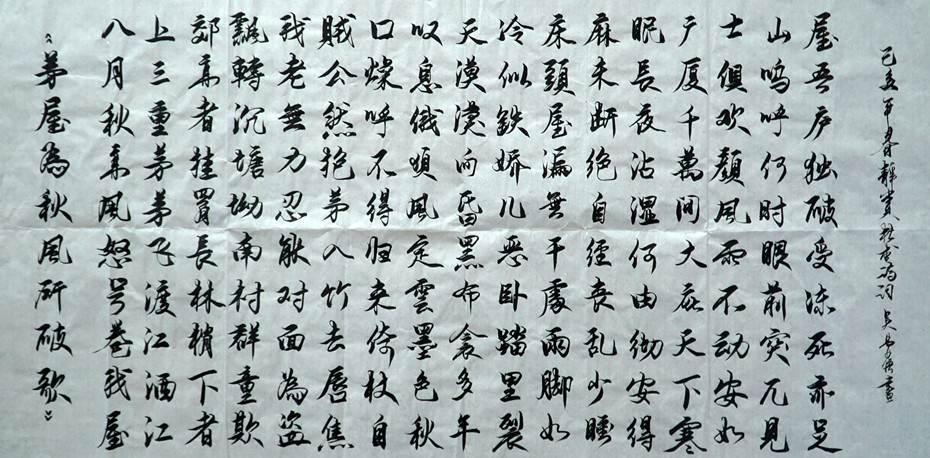 《茅屋為秋風所破歌》
八月秋高風怒号卷我屋
上三重茅茅飞渡江洒江
郊高者挂罥長林梢下者
飄轉沉塘坳南村群童欺
我老無力忍能对面為盗
贼公然抱茅入竹去唇焦
口燥呼不得归来倚杖自
叹息俄顷風定雲墨色秋
天漠漠向昏黑布衾多年
冷似鉄娇儿恶卧踏里裂
床頭屋漏無干處雨脚如
麻未断絶自經丧乱少睡
眠長夜沾湿何由彻安得
广厦千萬间大庇天下寒
士俱欢颜風雨不动安如
山呜呼何时眼前突兀見
屋吾庐独破受冻死亦足
己亥年春 诗词